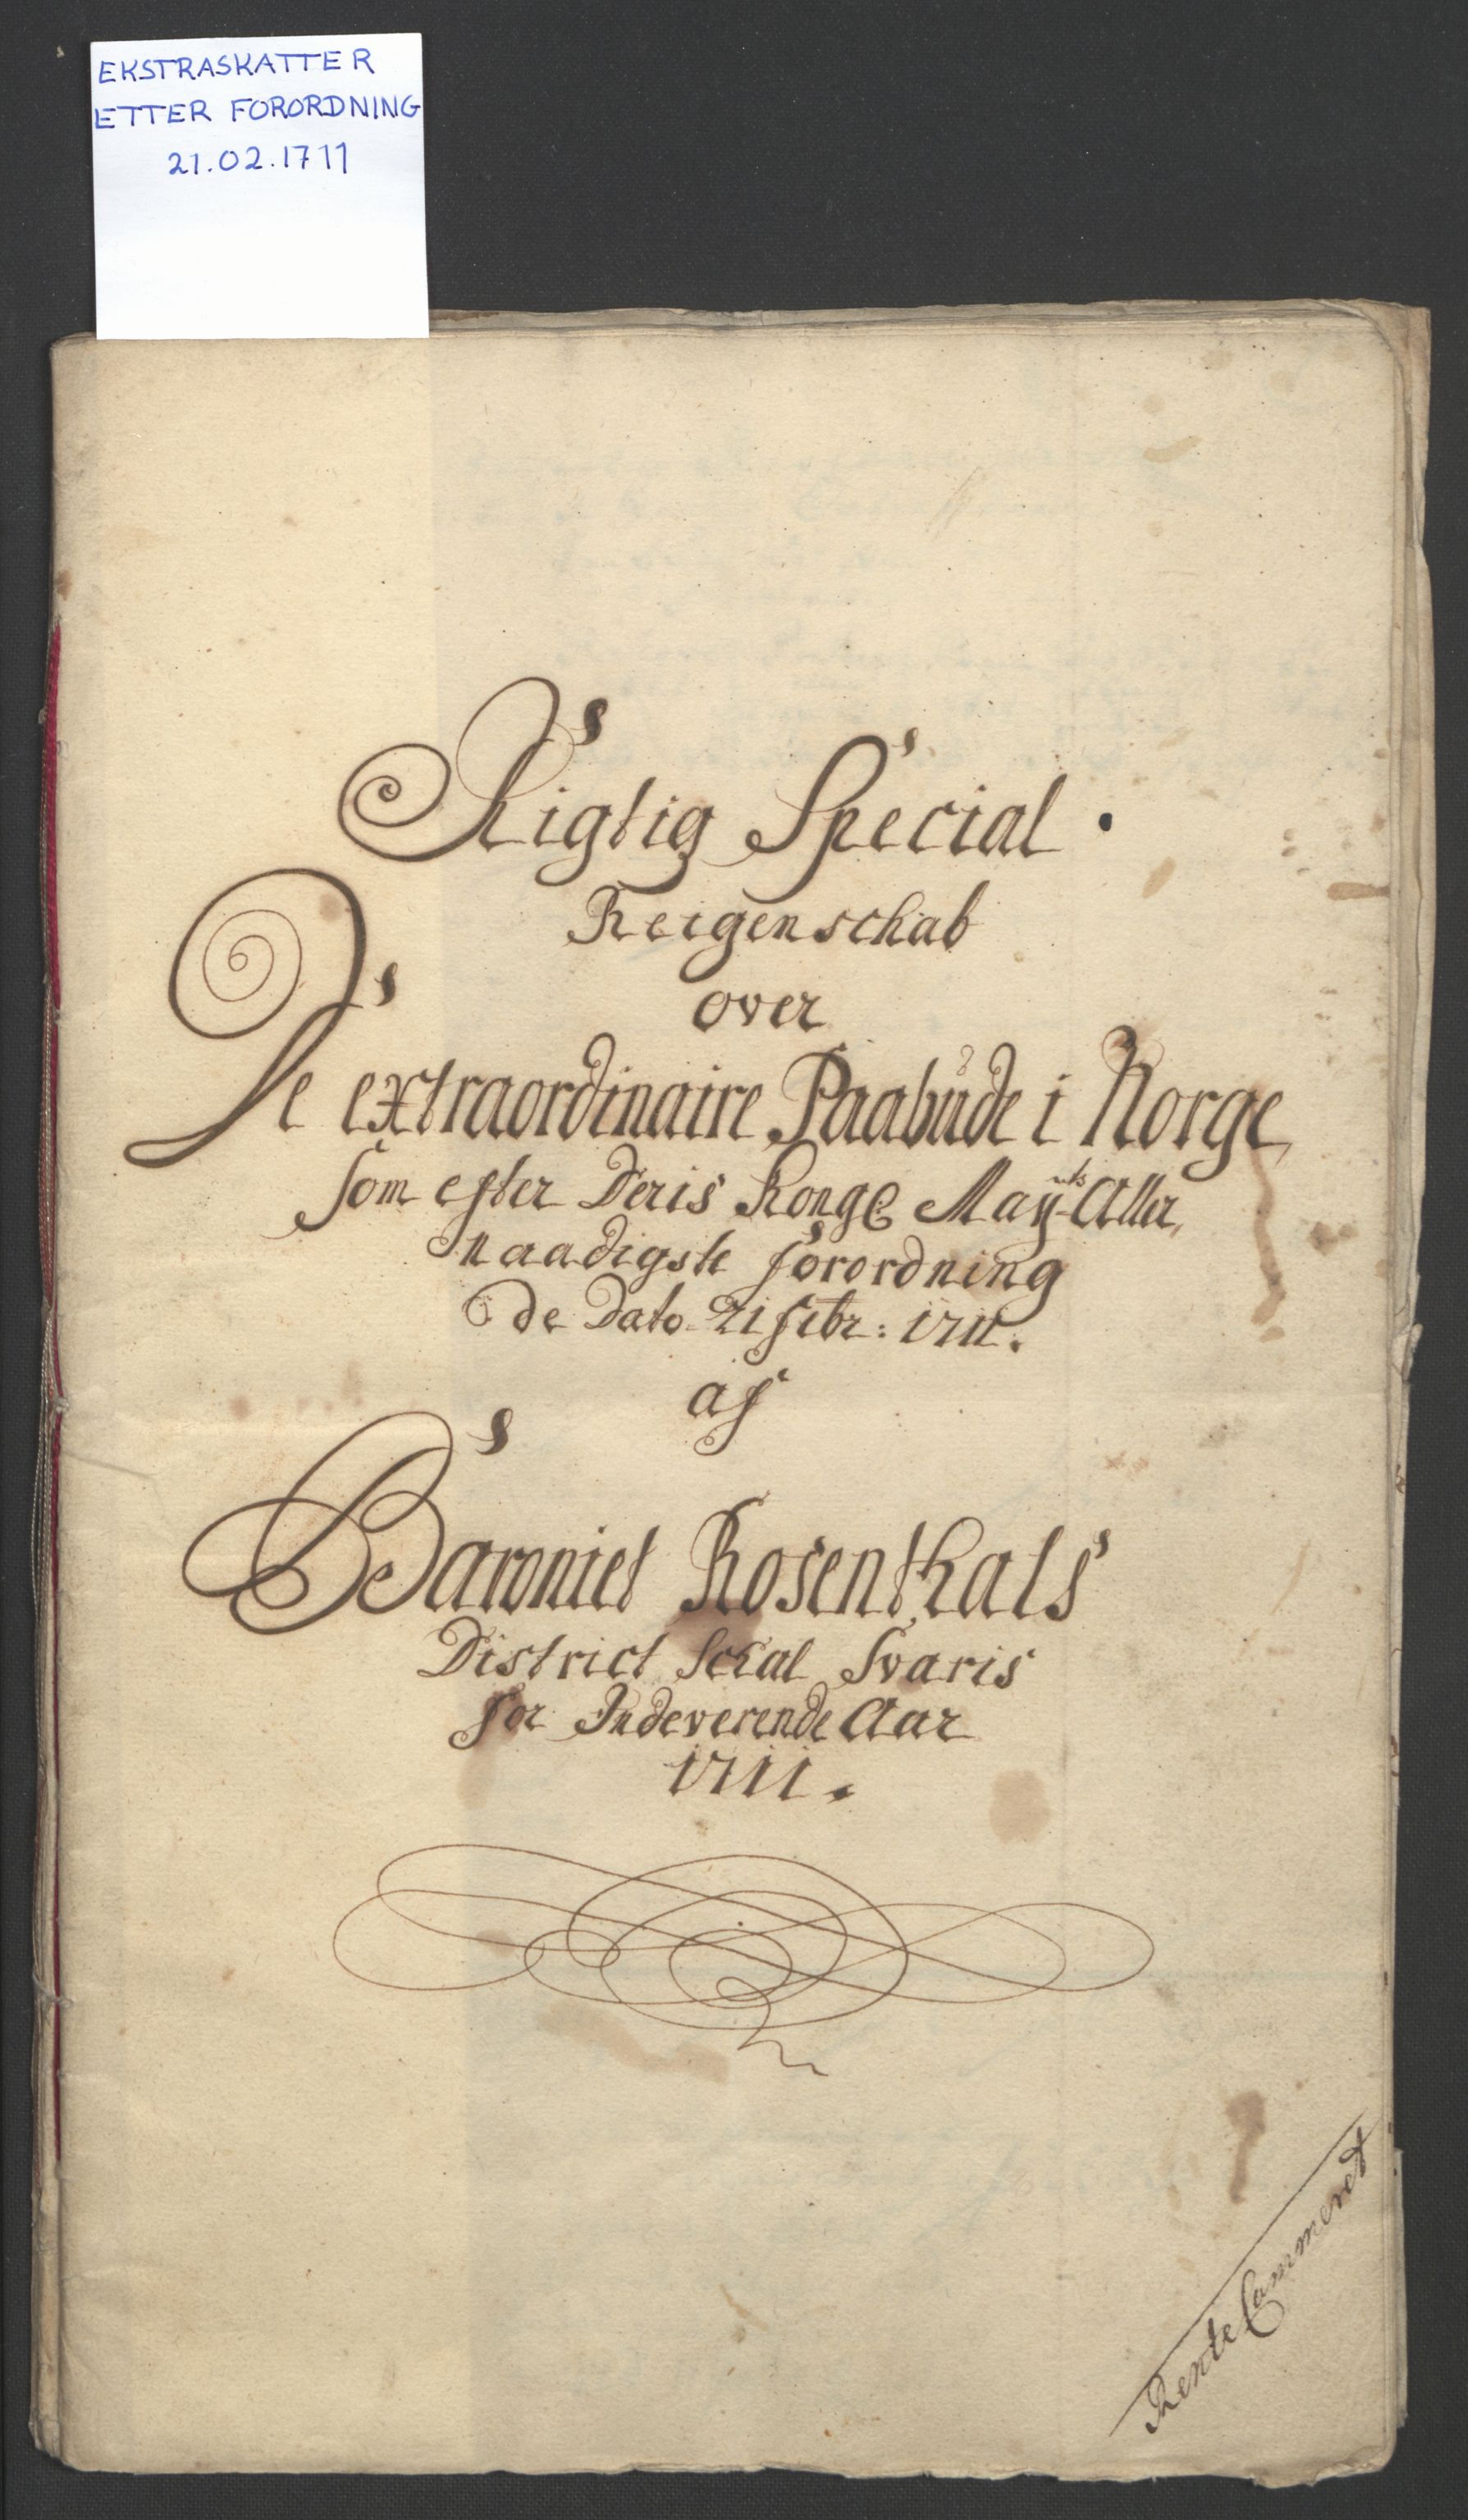 EKSTRASKATTER
ETTER FORORDNING
21.02.1711
Rigtig Special
Reigenschab
over
De extraordinaire Paabude i Norge
som efter Deris Konge May:ts Aller
naadigste forordning
de Dato 21 febr: 1711.
af
Baroniet Rosenthals
District Schal Svaris
for Indeverende Aar
1711.
Rente Cammeret